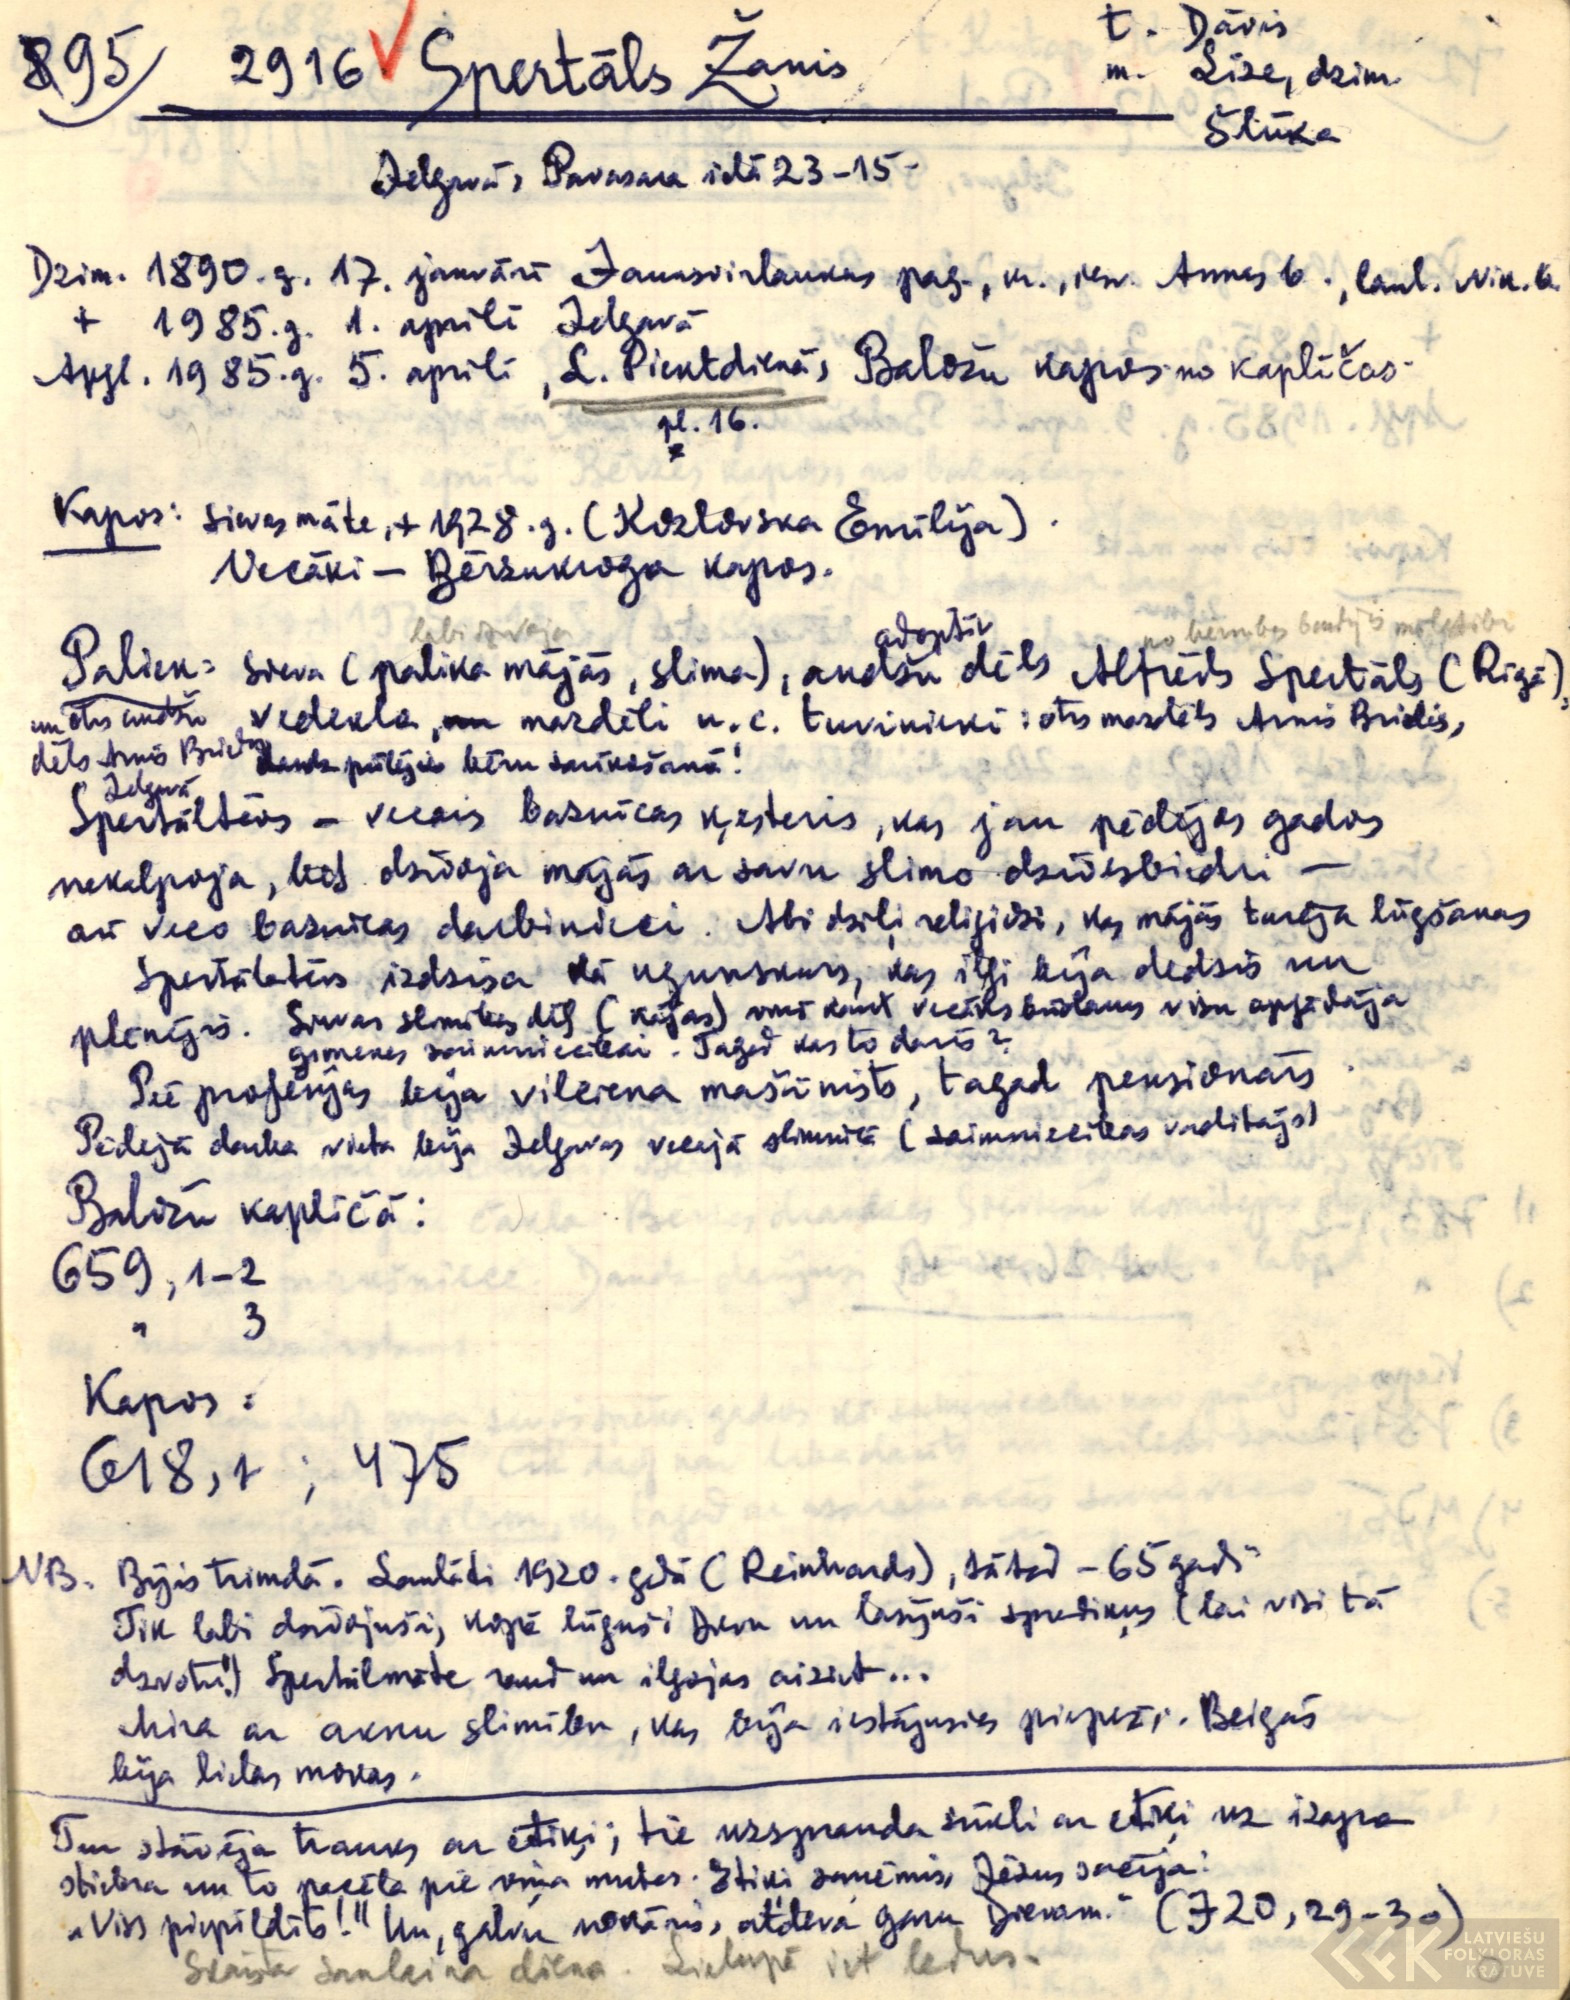 895 2916 Spertāls Žanis
t. Dāvis
m. Līze, dzim.
Šlūka
Jelgavā, Pavasara ielā 23-15-
Dzim. 1890.g. 17. janvārī Jaunsvirlaukas pag., kr., iesv. Annas b., laul. Nik.b.
+ 1985.g. 1. aprīlī Jelgavā
Apgl. 1985.g. 5. aprīlī, L. Piektdienā, Baložu kapos no kapličas.
pl. 16.
Kapos: sievasmāte, + 1928.g. (Kozlovska Emīlija).
Vecāki – Bērzukroga kapos.
labi dzīvoja
adoptēts
no bērnības baudījis mīlestību
Paliek: sieva (palika mājās, slima), audžu dēls Alfrēds Spertāls (Rīgā),
un otrs audžu vedekla, mazdēli u.c. tuvinieki: otrs mazdēls Arnis Briedis,
dēls Arnis Briedis daudz pūlējies bēru sarīkošanā!
Jelgavā
Spertāltēvs – vecais baznīcas ķesteris, kas jau pēdējos gados
nekalpoja, bet dzīvoja mājās ar savu slimo dzīvesbiedri –
arī veco baznīcas darbinieci. Abi dziļi reliģiozi, kas mājās turēja lūgšanas
Spertāltēvs izdzisa kā ugunskurs, kas ilgi bija dedzis un
plēnējis. Sievas slimības dēļ (kājas) viņš kaut vecāks būdams visu apgādāja
ģimenes saimniecībai. Tagad kas to darīs?
Pēc profesijas bija vilciena mašīnists, tagad pensionārs.
Pēdējā darba vieta bija Jelgavas vecajā slimnīcā (saimniecības vadītājs)
Baložu kapličā:
659, 1-2
" 3
Kapos:
618, 1 ; 475
NB. Bijis trimdā. Laulāti 1920. gadā (Reinhards), tātad – 65 gadi
Tik labi dzīvojuši, kopā lūguši Dievu un lasījuši sprediķus (lai visi tā
dzīvotu!) Spertālmāte raud un ilgojas aiziet...
Mira ar aknu slimību, kas bija iestājusies piepeži. Beigās
bija lielas mokas.
Tur stāvēja trauks ar etiķi; tie uzsprauda sūkli ar etiķi uz izapa
stiebra un to pacēla pie viņa mutes. Etiķi saņēmis, Jēzus sacīja:
"Viss piepildīts!" Un, galvu nokāris, atdeva garu Dievam." (J 20, 29-30)
Skaista saulaina diena. Lielupē iet ledus.
LATVIEŠU
FOLKLORAS
KRĀTUVE